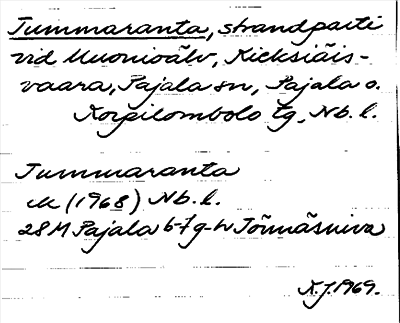 Tummaranta, strandparti
vid Muonioälv, Kieksiäis-
vaara, Pajala sn, Pajala o.
Korpilombolo tg, Nb. l.
Tummaranta
M (1968) Nb. l.
28M Pajala 6-7 g-h Jõunäsuiva
K.J. 1969.